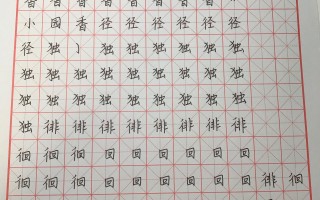 香香香香香香香香
小园香径径径径径径
径独独独独独独独
独独独独独独独独独
独独独独独独独独独
独徘徘徘徘徘徘徘徘
徊徊徊回回回回回回
徊徊徊回回回回回回徘徊